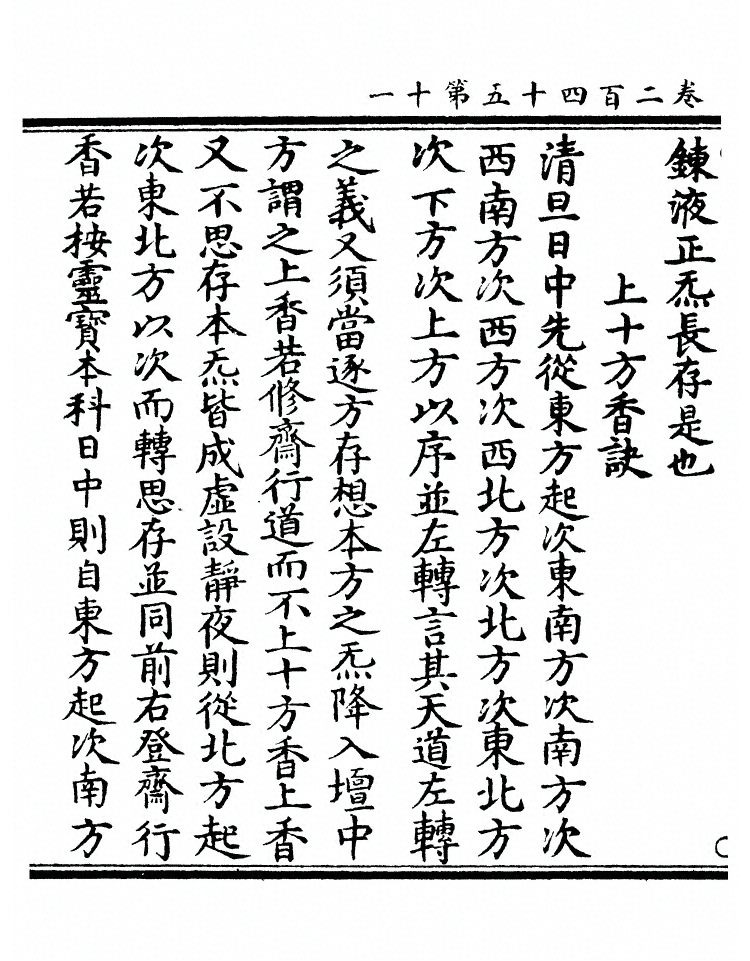 卷二百四十五第十一
鍊液正炁長存是也
上十方香訣
清旦日中先從東方起次東南方次南方次
西南方次西方次西北方次北方次東北方
次下方次上方以序並左轉言其天道左轉
之義又須當逐方存想本方之炁降入壇中
方謂之上香若修齋行道而不上十方香上香
又不思存本炁皆成虛設靜夜則從北方起
次東北方以次而轉思存並同前右登齋行
香若按靈寶本科日中則自東方起次南方